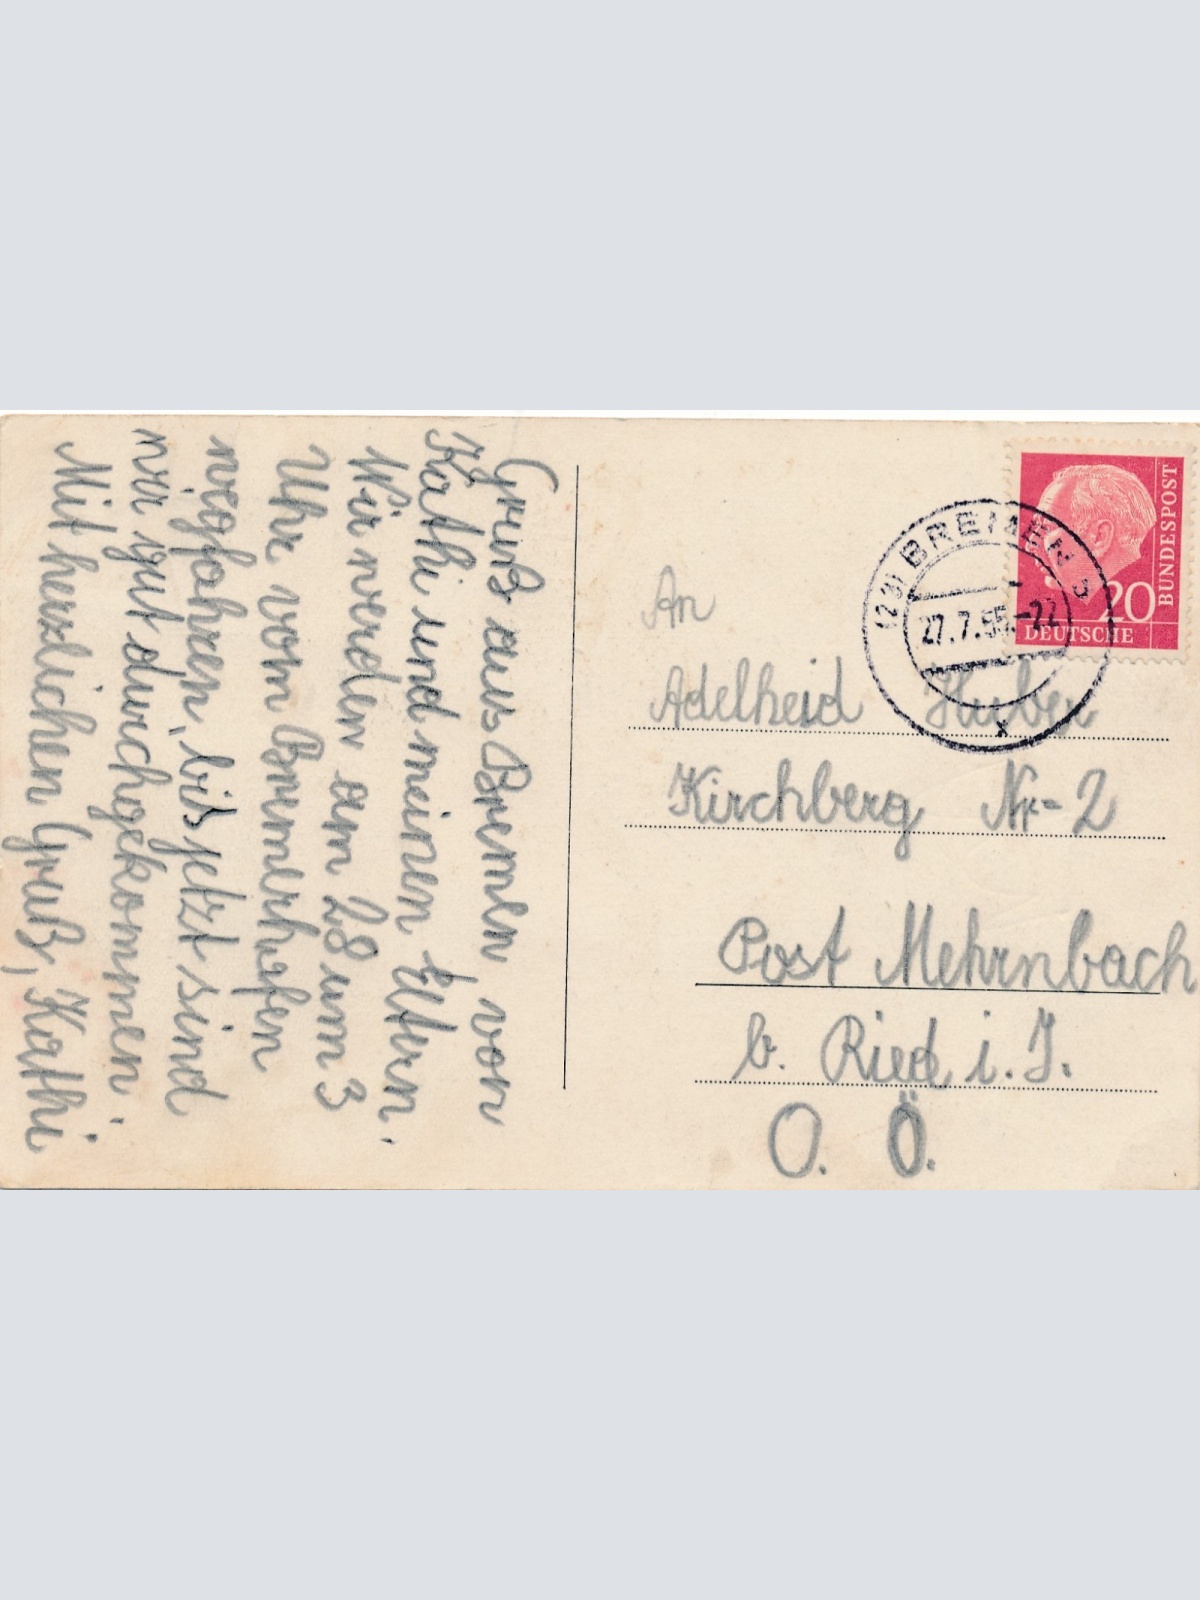 Gruß aus Bremen, von
Kathi und meinen Eltern.
Wir werden am 28 um 3
Uhr vom Bremerhafen
wegfahren, bis jetzt sind
wir gut durchgekommen.
Mit herzlichen Gruß, Kathi
BUNDESPOST
20
DEUTSCHE
(23) BREMEN 5
27.7.55.-22
An
Adelheid Huber
Kirchberg Nr-2
Post Mehrnbach
b. Ried i. J.
O. Ö.